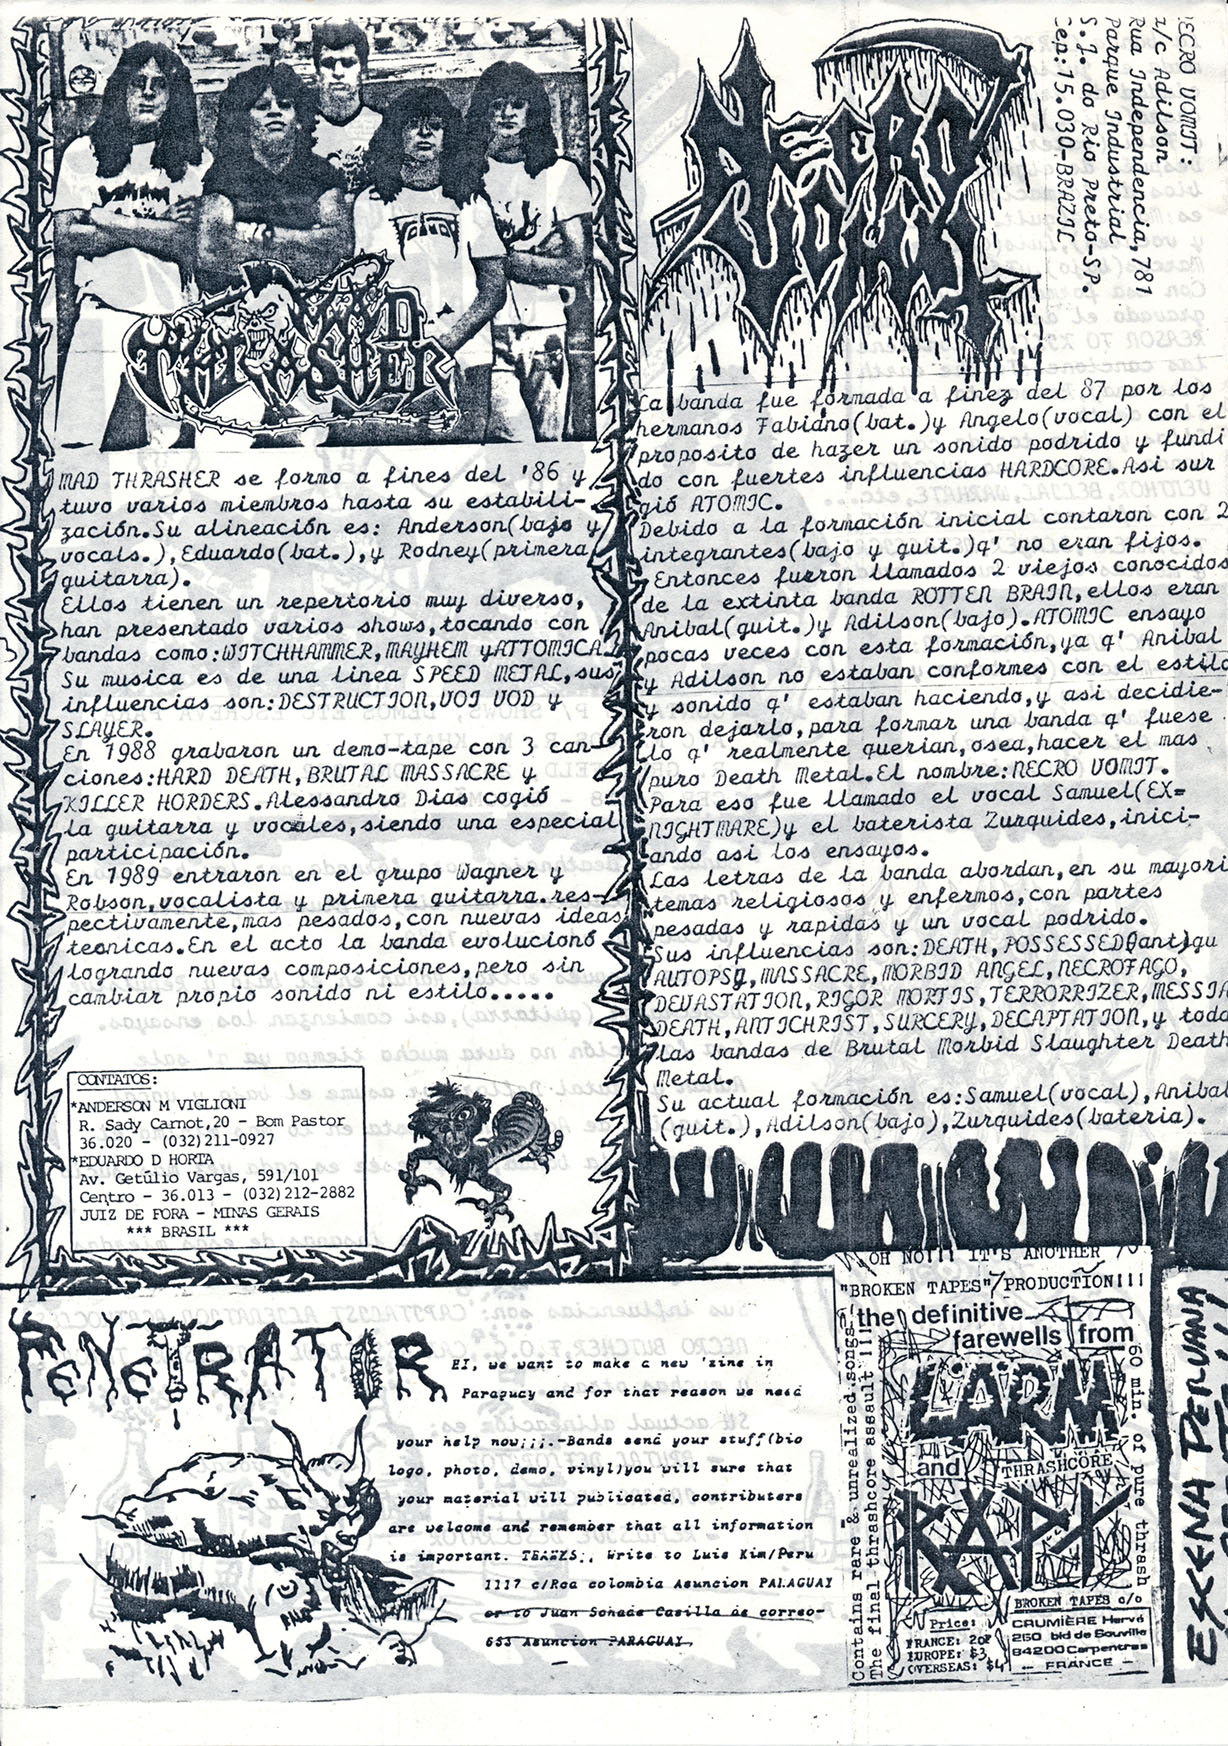 MAD
THRASHER
VOIVOD
MAD THRASHER se formo a fines del '86 y
tuvo varios miembros hasta su estabili-
zación.Su alineación es: Anderson(bajo y
vocals.),Eduardo(bat.),y Rodney(primera
guitarra).
Ellos tienen un repertorio muy diverso,
han presentado varios shows,tocando con
bandas como:WITCHHAMMER,MAYHEM yATTOMICA.
Su musica es de una linea SPEED METAL,sus
influencias son:DESTRUCTION,VOI VOD y
SLAYER.
En 1988 grabaron un demo-tape con 3 can-
ciones:HARD DEATH,BRUTAL MASSACRE y
KILLER HORDERS.Alessandro Dias cogió
la guitarra y vocales,siendo una especial
participación.
En 1989 entraron en el grupo Wagner y
Robson,vocalista y primera guitarra.res-
pectivamente,mas pesados,con nuevas ideas
tecnicas.En el acto la banda evolucionó
logrando nuevas composiciones,pero sin
cambiar propio sonido ni estilo.....
CONTATOS:
*ANDERSON M VIGLIONI
R. Sady Carnot,20 - Bom Pastor
36.020 - (032)211-0927
*EDUARDO D HORTA
Av. Getúlio Vargas, 591/101
Centro - 36.013 - (032)212-2882
JUIZ DE FORA - MINAS GERAIS
*** BRASIL ***
NECRO
VOMIT
NECRO VOMIT:
c/c Adilson
Rua Independencia,781
Parque Industrial
S.J. do Rio Preto-SP.
Cep:15.030-BRAZIL
La banda fue formada a finez del 87 por los
hermanos Fabiano(bat.)y Angelo(vocal) con el
proposito de hazer un sonido podrido y fundi
do con fuertes influencias HARDCORE.Asi sur
gió ATOMIC.
Debido a la formación inicial contaron con 2
integrantes(bajo y guit.)q' no eran fijos.
Entonces fueron llamados 2 viejos conocidos
de la extinta banda ROTTEN BRAIN,ellos eran
Anibal(guit.)y Adilson(bajo).ATOMIC ensayo
pocas veces con esta formación,ya q' Anibal
y Adilson no estaban conformes con el estilo
y sonido q' estaban haciendo,y asi decidie-
ron dejarlo,para formar una banda q' fuese
lo q' realmente querian,osea,hacer el mas
puro Death Metal.El nombre:NECRO VOMIT.
Para eso fue llamado el vocal Samuel(EX=
NIGHTMARE)y el baterista Zurquides,inici-
ando asi los ensayos.
Las letras de la banda abordan,en su mayori
temas religiosos y enfermos,con partes
pesadas y rapidas y un vocal podrido.
Sus influencias son:DEATH,POSSESSED(ant)gu
AUTOPSY,MASSACRE,MORBID ANGEL,NECROFAGO,
DEVASTATION,RIGOR MORTIS,TERRORRIZER,MESSIA
DEATH,ANTICHRIST,SURCERY,DECAPTATION,y toda
las bandas de Brutal Morbid Slaughter Death
Metal.
Su actual formación es:Samuel(vocal),Anibal
(guit.),Adilson(bajo),Zurquides(bateria).
PENETRATOR
HI, we want to make a new 'zine in
Paraguay and for that reason we need
your help now;;;.-Bands send your stuff(bio
logo, photo, demo, vinyl)you will sure that
your material will publicated, contributers
are welcome and remember that all information
is important. THANKS;, Write to Luis Kim/Peru
1117 c/Roa colombia Asuncion PARAGUAY
or to Juan Sonade Casilla de correo-
653 Asuncion PARAGUAY,
OH NO!!! IT'S ANOTHER
"BROKEN TAPES" PRODUCTION!!!
the definitive
farewells from
LÄRM
and
THRASHCORE
RAPT
Contains rare & unrealized songs
The final thrashcore assault !!!
60 min. of pure thrash
Price:
FRANCE: 20F
EUROPE: $3
OVERSEAS: $4
BROKEN TAPES c/o
CRUMIÈRE Hervé
250 bld de Souville
84200 Carpentras
- FRANCE -
ESCENA PERUANA